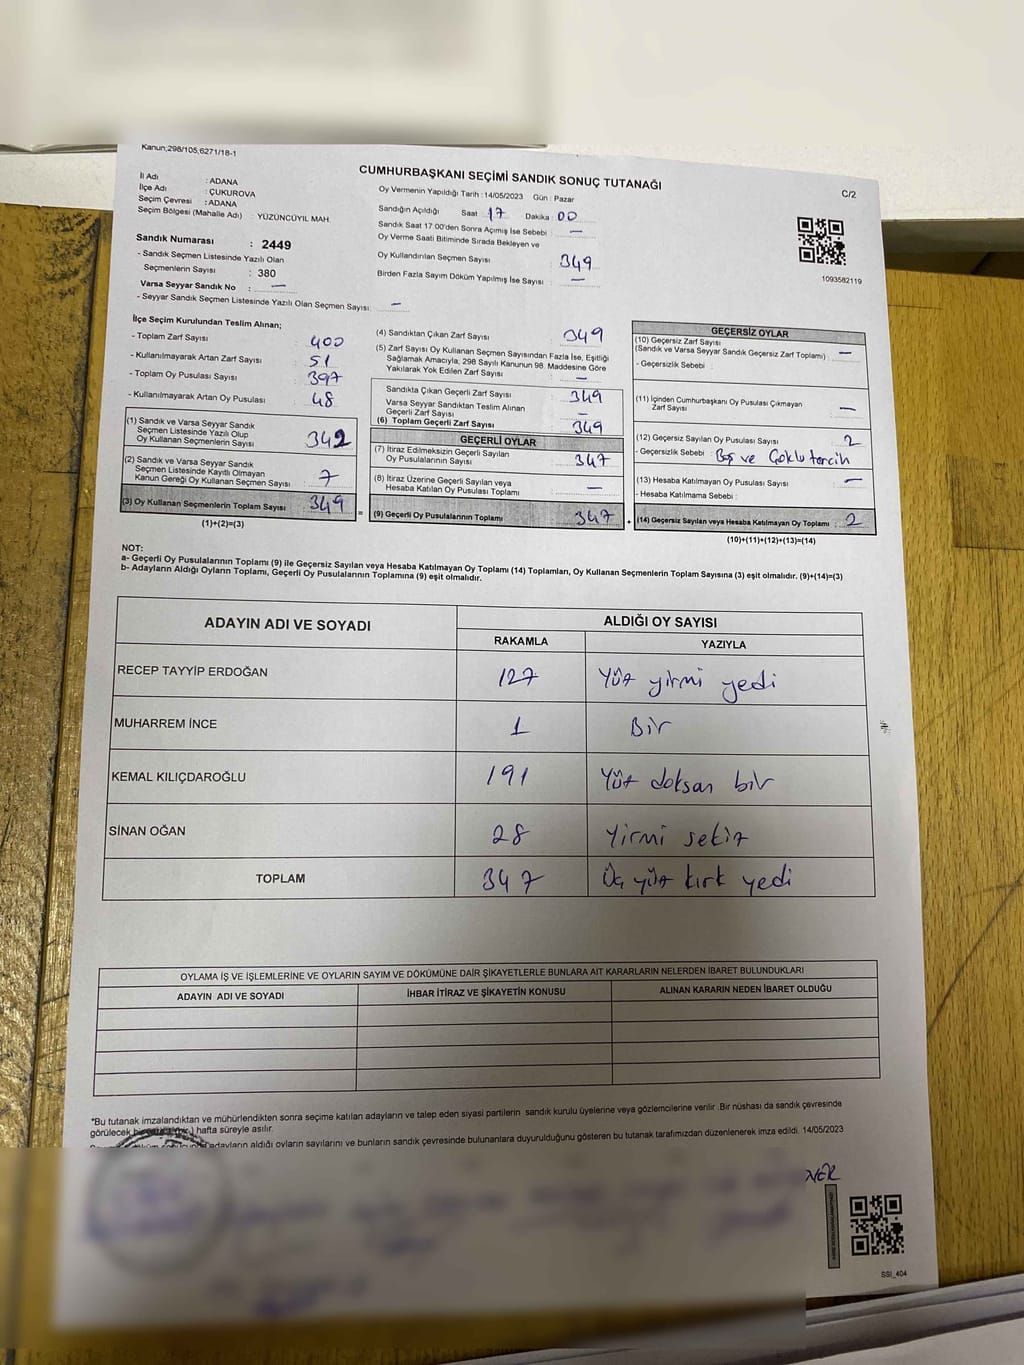 Kanun;298/105,6271/18-1
CUMHURBAŞKANI SEÇİMİ SANDIK SONUÇ TUTANAĞI
C/2
İl Adı : ADANA
İlçe Adı : ÇUKUROVA
Seçim Çevresi : ADANA
Seçim Bölgesi (Mahalle Adı) : YÜZÜNCÜYIL MAH.
Oy Vermenin Yapıldığı Tarih : 14/05/2023 Gün : Pazar
Sandığın Açıldığı Saat 17 Dakika : 00
Sandık Saat 17:00'den Sonra Açımış İse Sebebi : —
Oy Verme Saati Bitiminde Sırada Bekleyen ve
Oy Kullandırılan Seçmen Sayısı : 349
Birden Fazla Sayım Döküm Yapılmış İse Sayısı : —
1093582119
Sandık Numarası : 2449
- Sandık Seçmen Listesinde Yazılı Olan
Seçmenlerin Sayısı : 380
Varsa Seyyar Sandık No : —
- Seyyar Sandık Seçmen Listesinde Yazılı Olan Seçmen Sayısı: —
İlçe Seçim Kurulundan Teslim Alınan;
- Toplam Zarf Sayısı : 400
- Kullanılmayarak Artan Zarf Sayısı : 51
- Toplam Oy Pusulası Sayısı : 397
- Kullanılmayarak Artan Oy Pusulası : 48
(1) Sandık ve Varsa Seyyar Sandık
Seçmen Listesinde Yazılı Olup
Oy Kullanan Seçmenlerin Sayısı : 342
(2) Sandık ve Varsa Seyyar Sandık
Seçmen Listesinde Kayıtlı Olmayan
Kanun Gereği Oy Kullanan Seçmen Sayısı : 7
(3) Oy Kullanan Seçmenlerin Toplam Sayısı : 349
(1)+(2)=(3)
(4) Sandıktan Çıkan Zarf Sayısı : 349
(5) Zarf Sayısı Oy Kullanan Seçmen Sayısından Fazla İse, Eşitliği
Sağlamak Amacıyla, 298 Sayılı Kanunun 98. Maddesine Göre
Yakılarak Yok Edilen Zarf Sayısı : —
Sandıkta Çıkan Geçerli Zarf Sayısı : 349
Varsa Seyyar Sandıktan Teslim Alınan
Geçerli Zarf Sayısı : —
(6) Toplam Geçerli Zarf Sayısı : 349
GEÇERLİ OYLAR
(7) İtiraz Edilmeksizin Geçerli Sayılan
Oy Pusulalarının Sayısı : 347
(8) İtiraz Üzerine Geçerli Sayılan veya
Hesaba Katılan Oy Pusulası Toplamı : —
= (9) Geçerli Oy Pusulalarının Toplamı : 347
GEÇERSİZ OYLAR
(10) Geçersiz Zarf Sayısı
(Sandık ve Varsa Seyyar Sandık Geçersiz Zarf Toplamı) : —
- Geçersizlik Sebebi :
(11) İçinden Cumhurbaşkanı Oy Pusulası Çıkmayan
Zarf Sayısı : —
(12) Geçersiz Sayılan Oy Pusulası Sayısı : 2
- Geçersizlik Sebebi : Boş ve Çoklu tercih
(13) Hesaba Katılmayan Oy Pusulası Sayısı : —
- Hesaba Katılmama Sebebi :
+ (14) Geçersiz Sayılan veya Hesaba Katılmayan Oy Toplamı : 2
(10)+(11)+(12)+(13)=(14)
NOT:
a- Geçerli Oy Pusulalarının Toplamı (9) ile Geçersiz Sayılan veya Hesaba Katılmayan Oy Toplamı (14) Toplamları, Oy Kullanan Seçmenlerin Toplam Sayısına (3) eşit olmalıdır. (9)+(14)=(3)
b- Adayların Aldığı Oyların Toplamı, Geçerli Oy Pusulalarının Toplamına (9) eşit olmalıdır.
ADAYIN ADI VE SOYADI
ALDIĞI OY SAYISI
RAKAMLA YAZIYLA
RECEP TAYYİP ERDOĞAN 127 Yüz yirmi yedi
MUHARREM İNCE 1 Bir
KEMAL KILIÇDAROĞLU 191 Yüz doksan bir
SİNAN OĞAN 28 Yirmi sekiz
TOPLAM 347 Üç yüz kırk yedi
OYLAMA İŞ VE İŞLEMLERİNE VE OYLARIN SAYIM VE DÖKÜMÜNE DAİR ŞİKAYETLERLE BUNLARA AİT KARARLARIN NELERDEN İBARET BULUNDUKLARI
ADAYIN ADI VE SOYADI İHBAR İTİRAZ VE ŞİKAYETİN KONUSU ALINAN KARARIN NEDEN İBARET OLDUĞU
*Bu tutanak imzalandıktan ve mühürlendikten sonra seçime katılan adayların ve talep eden siyasi partilerin sandık kurulu üyelerine veya gözlemcilerine verilir .Bir nüshası da sandık çevresinde
görülecek bir hafta süreyle asılır.
adayların aldığı oyların sayılarını ve bunların sandık çevresinde bulunanlara duyurulduğunu gösteren bu tutanak tarafımızdan düzenlenerek imza edildi. 14/05/2023
SSI_404